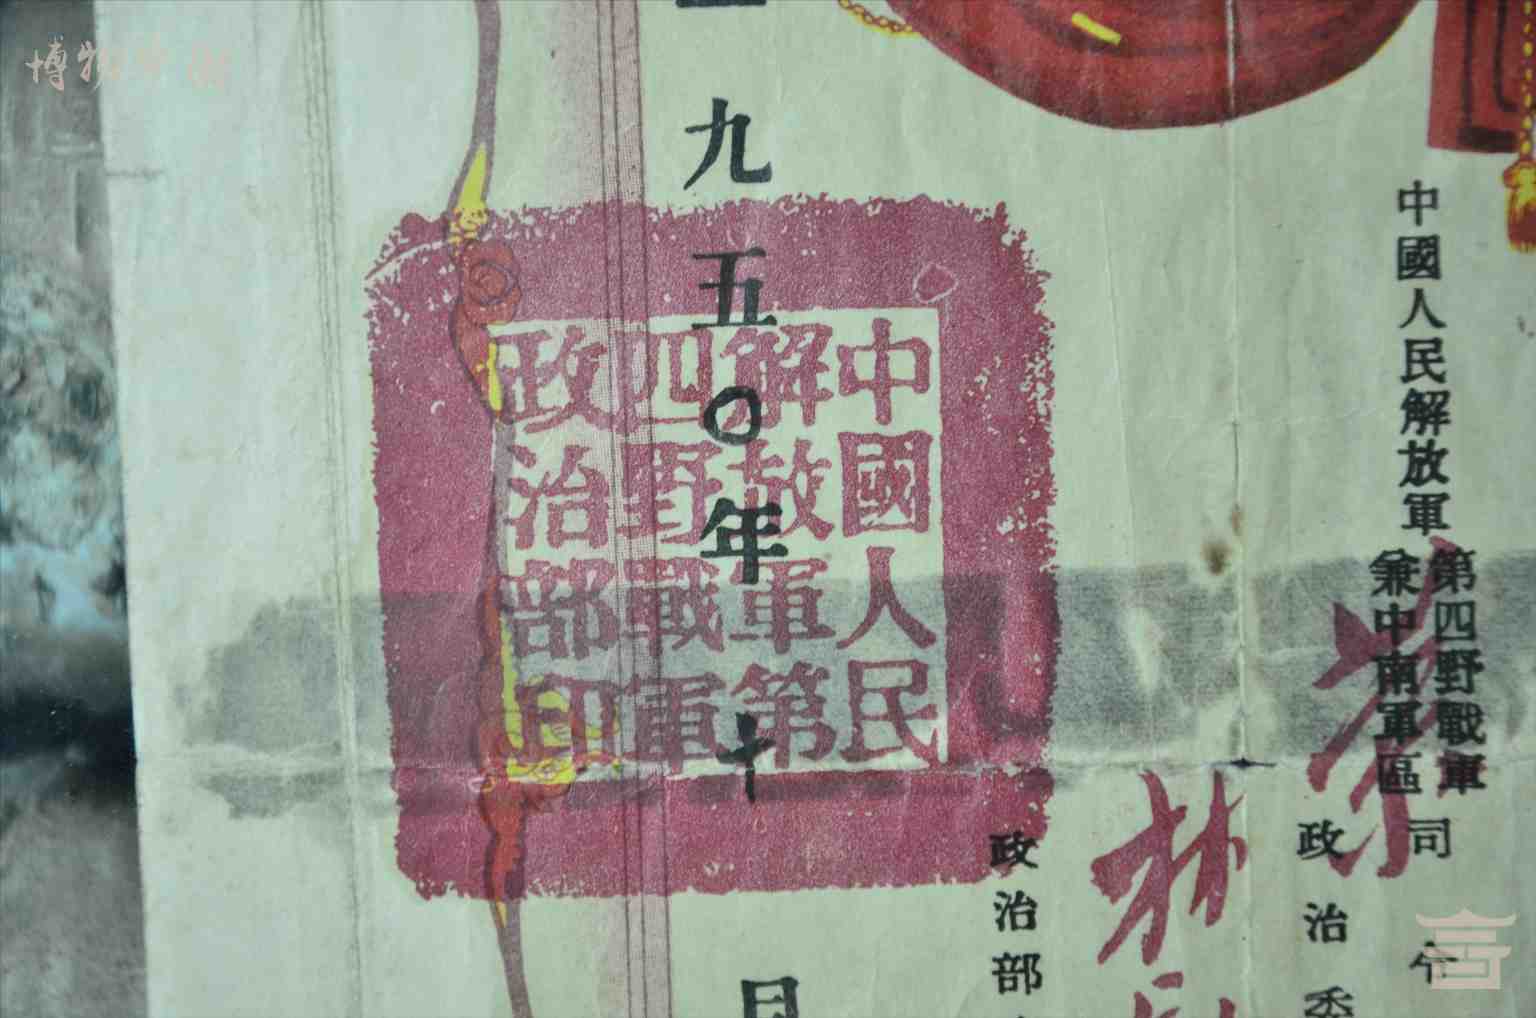 博物中國
中國人民解放軍
第四野戰軍
兼中南軍區
司令
政治委
林
政治部
一九五〇年十
月
中國人民
解放軍第
四野戰軍
政治部印